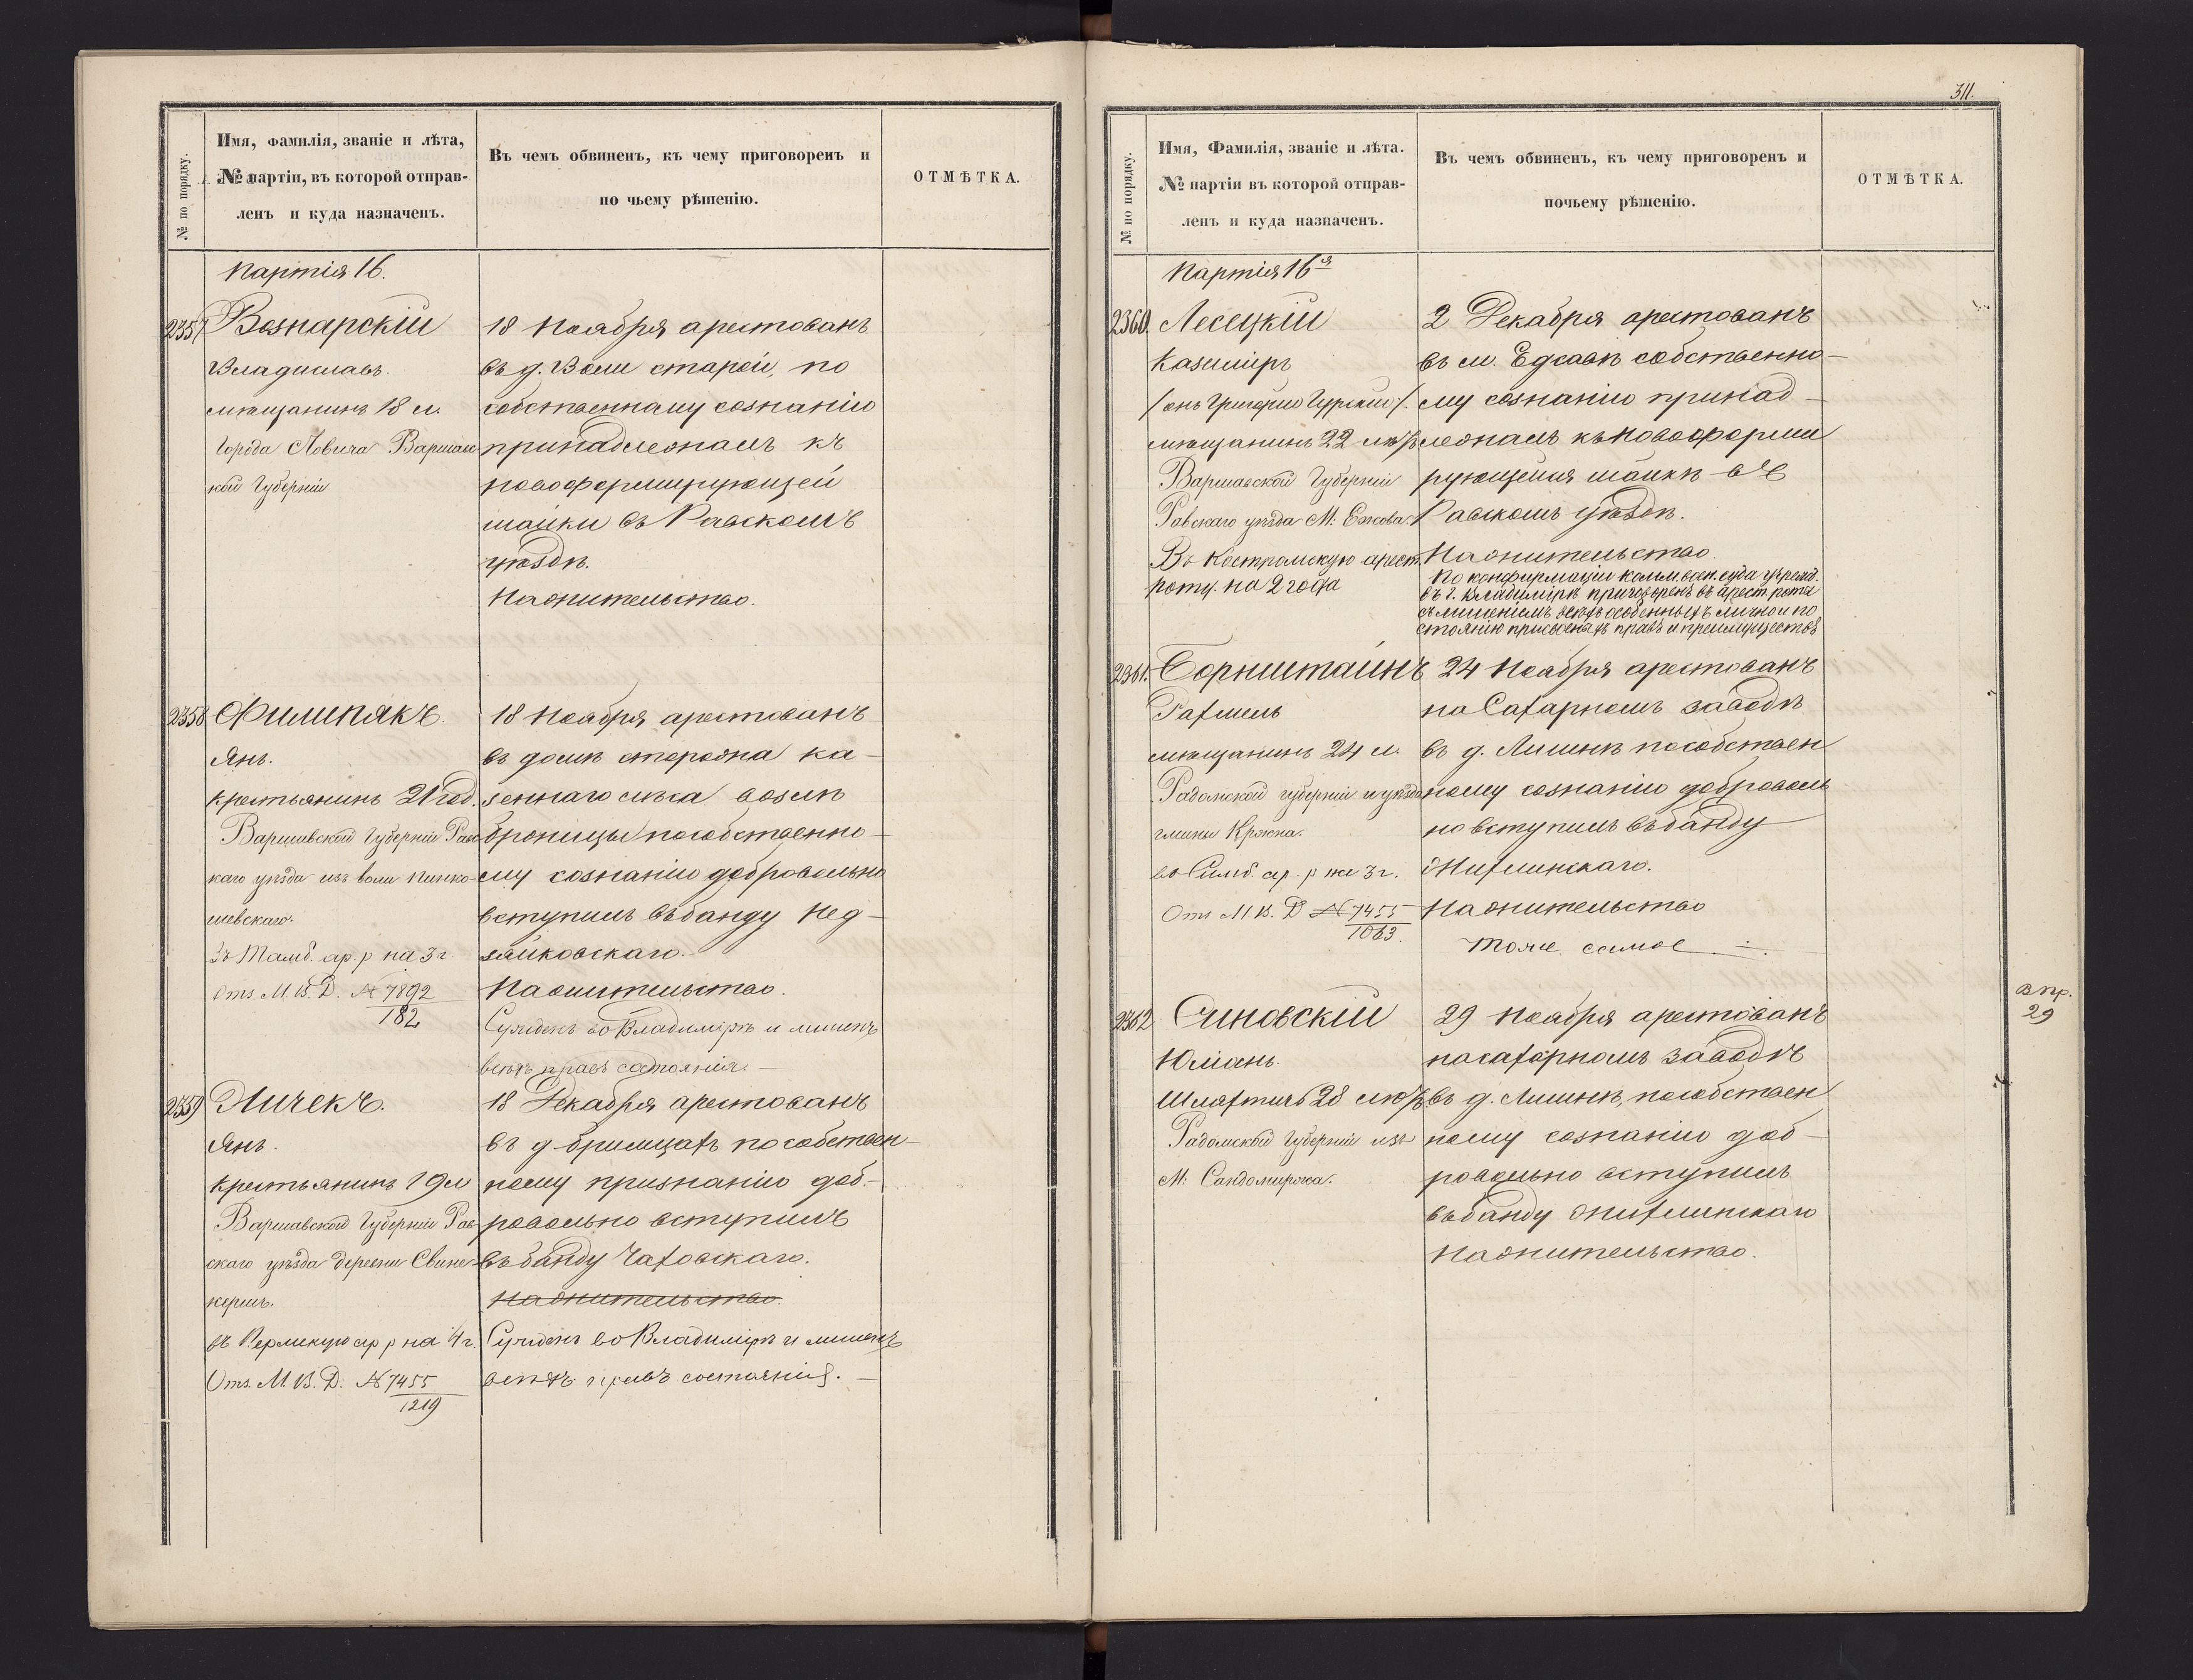 311.
№ по порядку.
Имя, Фамилія, званіе и лѣта,
№ партіи, въ которой отправ-
ленъ и куда назначенъ.
Въ чемъ обвиненъ, къ чему приговоренъ и
по чьему рѣшенію.
ОТМѢТКА.
Партія 16.
2357
Вознарскій
Владиславъ.
мѣщанинъ 18 л.
Города Ловича Варшавс-
кой Губерніи
18 Ноября арестованъ
въ д. Воли старой, по
собственному сознанію
принадлежалъ къ
новоформирующей
шайки въ Равскомъ
уѣздѣ.
На жительство.
2358
Филипякъ.
Янъ.
крестьянинъ 21 год.
Варшавской Губерніи Равс-
каго уѣзда изъ воли Пинко-
шевскаго.
Въ Тамб. ар. р на 3 г.
Отз. М. В. Д. № 7892
182
18 Ноября арестованъ
въ домѣ сторожа ка-
зеннаго лѣса возлѣ
броницы по собственно-
му сознанію добровольно
вступилъ въ банду Нед-
зяйковскаго.
На жительство.
Сужденъ во Владимірѣ и лишенъ
всѣхъ правъ состоянія. —
2359
Личекъ.
Янъ.
крестьянинъ 19 л
Варшавской Губерніи Рав-
скаго уѣзда деревни Свине-
кершъ.
въ Пермскую ар р на 4 г.
Отз. М. В. Д. № 7455
1219
18 Декабря арестованъ
въ д. брищцахъ по собствен-
ному признанію доб-
ровольно вступилъ
въ банду Чаховскаго.
На жительство.
Сужденъ во Владимірѣ и лишенъ
всѣхъ правъ состоянія. —
№ по порядку.
Имя, Фамилія, званіе и лѣта.
№ партіи въ которой отправ-
ленъ и куда назначенъ.
Въ чемъ обвиненъ, къ чему приговоренъ и
почьему рѣшенію.
ОТМѢТКА.
Партія 16я
2360.
Лесецкій
Казиміръ
/онъ Григорій Гурскій/.
мѣщанинъ 22 лѣтъ
Варшавской Губерніи
Равскаго уѣзда М. Ежова.
Въ Костромскую арест.
роту. на 2 года
2 Декабря арестованъ
въ м. Едсавѣ собственно-
му сознанію принад-
лежалъ къ новоформи
рующейся шайкѣ въ
Равскомъ уѣздѣ.
На жительство.
По конфирмаціи комм. воен. суда учрежд.
въ г. Владимірѣ приговоренъ въ арест. роты
съ лишеніемъ всѣхъ особенныхъ лично и по
стоянію присвоенныхъ правъ и преимуществъ
2361.
Борнштайнъ
Рахмель
мѣщанинъ 24 л.
Радомской губерніи и уѣзда
гмины Кржна.
въ Симб. ар. р на 3 г.
Отз М. В. Д № 7455
1063.
24 Ноября арестованъ
на Сахарномъ заводѣ
въ д. Лишнѣ по собствен
ному сознанію доброволь
но вступилъ въ банду
Жихлинскаго.
На жительство
Тоже самое
2362
Синовскій
Юліанъ.
Шляхтичъ 28 лѣтъ
Радомской Губерніи изъ
М. Сандомиржа.
29 Ноября арестованъ
на сахарномъ заводѣ
въ д. Лишнѣ, по собствен
ному сознанію доб-
ровольно вступилъ
въ банду Жихлинскаго
На жительство.
в пр.
29